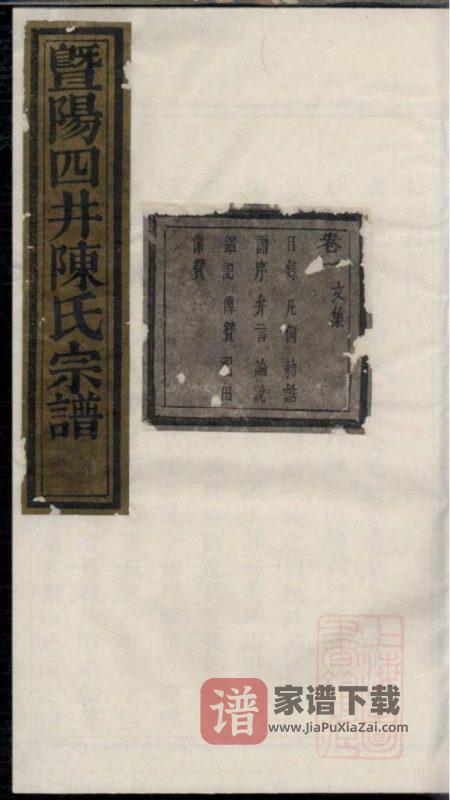 暨陽四井陳氏宗譜
卷一 文集
目錄 凡例 勅誥
譜序 弁言 論說
銘記 傳贊 祀田
像贊
谱 家谱下载
www.JiaPuXiaZai.com